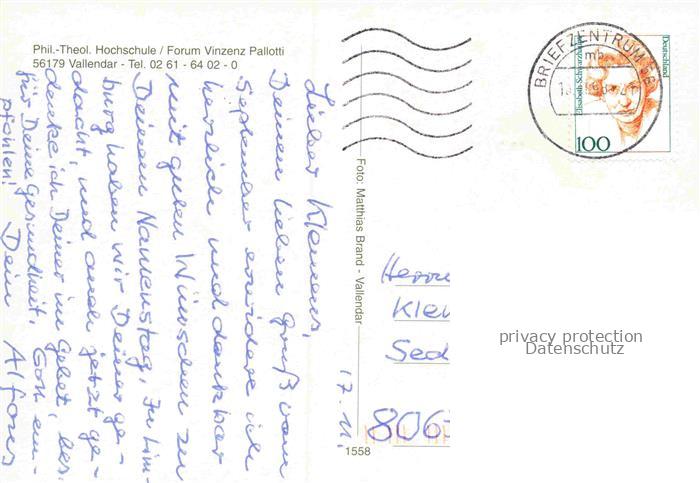 Phil.-Theol. Hochschule / Forum Vinzenz Pallotti
56179 Vallendar - Tel. 02 61 - 64 02 - 0
Lieber Klemens,
Deinen lieben Gruß vom
September erwidere ich
herzlich und dankbar
mit guten Wünschen zu
Deinem Namenstag. In Lim-
burg haben wir Deiner ge-
dacht, und auch jetzt ge-
denke ich Deiner im Gebet, bes.
für Deine Gesundheit. Gott em-
pfohlen! Dein Alfons
17.11.
Foto: Matthias Brand - Vallendar
1558
BRIEFZENTRUM 56
mb
Deutschland
Elisabeth Schwarzhaupt
100
Herrn
Kle
Sed
806
privacy protection
Datenschutz